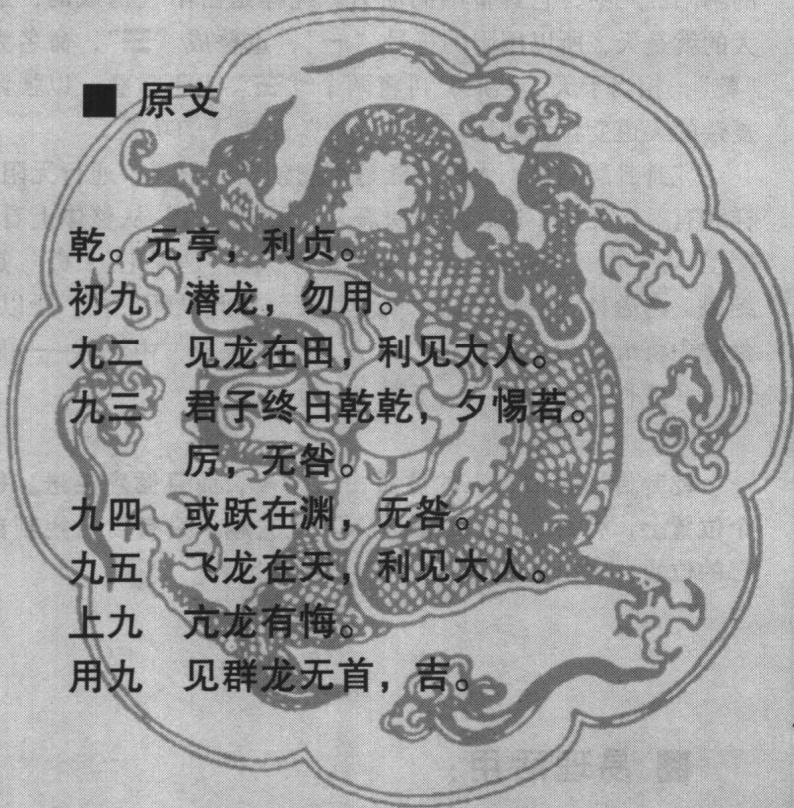 ■ 原文
乾。元亨，利贞。
初九 潜龙，勿用。
九二 见龙在田，利见大人。
九三 君子终日乾乾，夕惕若。
厉，无咎。
九四 或跃在渊，无咎。
九五 飞龙在天，利见大人。
上九 亢龙有悔。
用九 见群龙无首，吉。